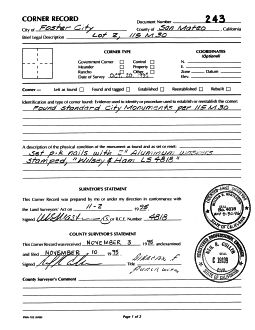 CORNER RECORD
Document Number 243
City of Foster City County of San Mateo California
Brief Legal Description Lot 2, 115 M 30
CORNER TYPE
COORDINATES
(Optional)
Government Corner Control
Meander Property
Rancho Other
Date of Survey Oct 10 1995
N.
E.
Zone Datum
Elev.
Corner — Left as found Found and tagged Established Reestablished Rebuilt
Identification and type of corner found: Evidence used to identify or procedure used to establish or reestablish the corner:
Found Standard City Monuments per 115 M 30
A description of the physical condition of the monument as found and as set or reset:
Set P-K nails with 2" Aluminum washers
stamped, "Wilsey & Ham LS 4818"
SURVEYOR'S STATEMENT
This Corner Record was prepared by me or under my direction in conformance with
the Land Surveyors' Act on 11-2 1995
Signed L.S. or R.C.E. Number 4818
COUNTY SURVEYOR'S STATEMENT
This Corner Record was received NOVEMBER 3 1995, and examined
and filed NOVEMBER 10 1995
Signed Title
County Surveyor's Comment
Page 1 of 2